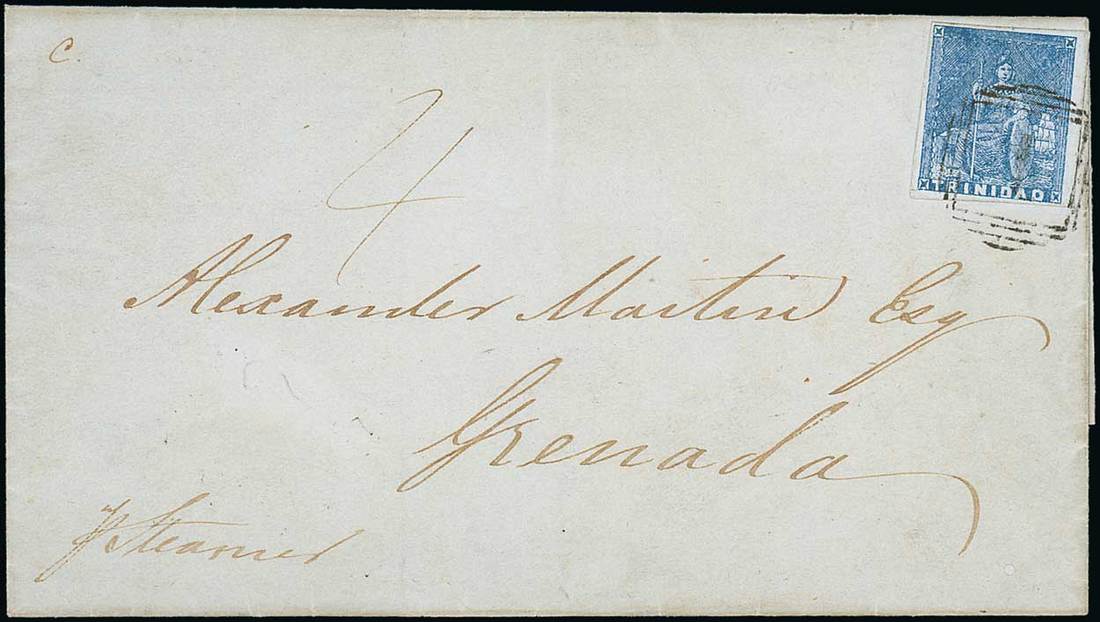 c.
TRINIDAD
4
Alexander Martin Esq
Grenada
p Steamer